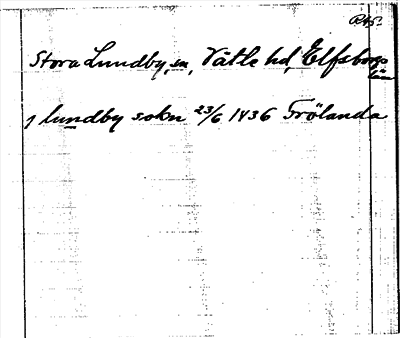 Stora Lundby, sn, Vättle hd, Elfsborgs
län
j lundby sokn 23/6 1436 Frölanda